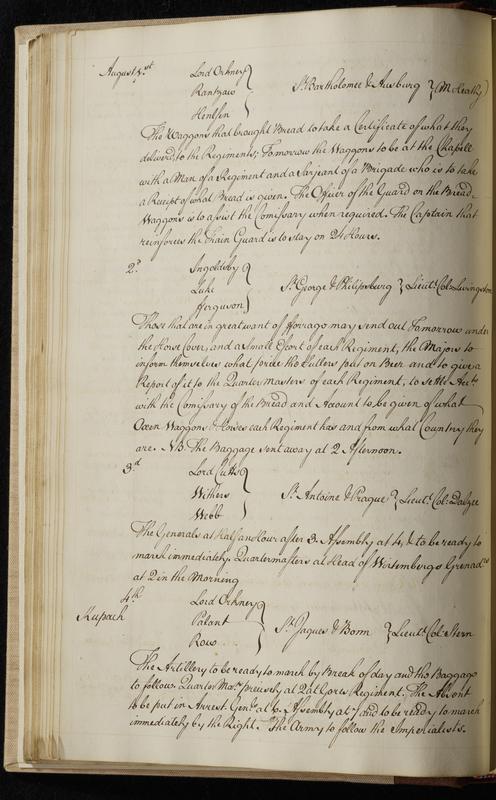 August 1.st Lord Orkney
Rantzaw } St. Bartholomee & Ausburg } (M:
Henlsen
The Waggons that brought Bread to take a Certificate of what they
deliverd, to the Regiments; Tomorrow the Waggons to be at the Chapell
with a Man of a Regiment and a Sarjeant of a Brigade who is to take
a Receipt of what Bread is given. The Officer of the Guard on the Bread
Waggons is to assist the Comissary when required. The Captain that
reinforces the Train Guard is to stay on 24 Hours.
2.d Ingoldsby
Luke } St. George & Philipsburg } Lieut.t Col:o Livingston
fferguson
Those that are in great want of fforrage may send out Tomorrow under
the Horse Cover, and a small Escort of each Regiment, the Majors to
inform themselves what price the Sutlers put on Beer and to give a
Report of it to the Quarter Masters of each Regiment, to settle Acc.ts
with the Comissary of the Bread and Account to be given of what
Oxen Waggons & Horses each Regiment has and from what Country they
are. NB. The Baggage sent away at 2 Afternoon.
3.d Lord Cutts
Withers } St. Antoine & Prague } Lieut.t Col: Dalzee
Webb
The Generals at Half an Hour after 3 Assembly at 4, & to be ready to
march immediately. Quartermasters at Head of Wirtembergs Grenad.rs
at 2 in the Morning
4.th Lord Orkney
Kupach Palant } St. Jaques & Bonn } Lieut.t Col: Stern
Row
The Artillery to be ready to march by Break of day and the Baggage
to follow. Quarter Mas.rs precisely at 2 at Gores Regiment. The Absent
to be put in Arrest. Gen.l at 6. Assembly at 7 and to be ready to march
immediately by the Right. The Army to follow the Imperialists.